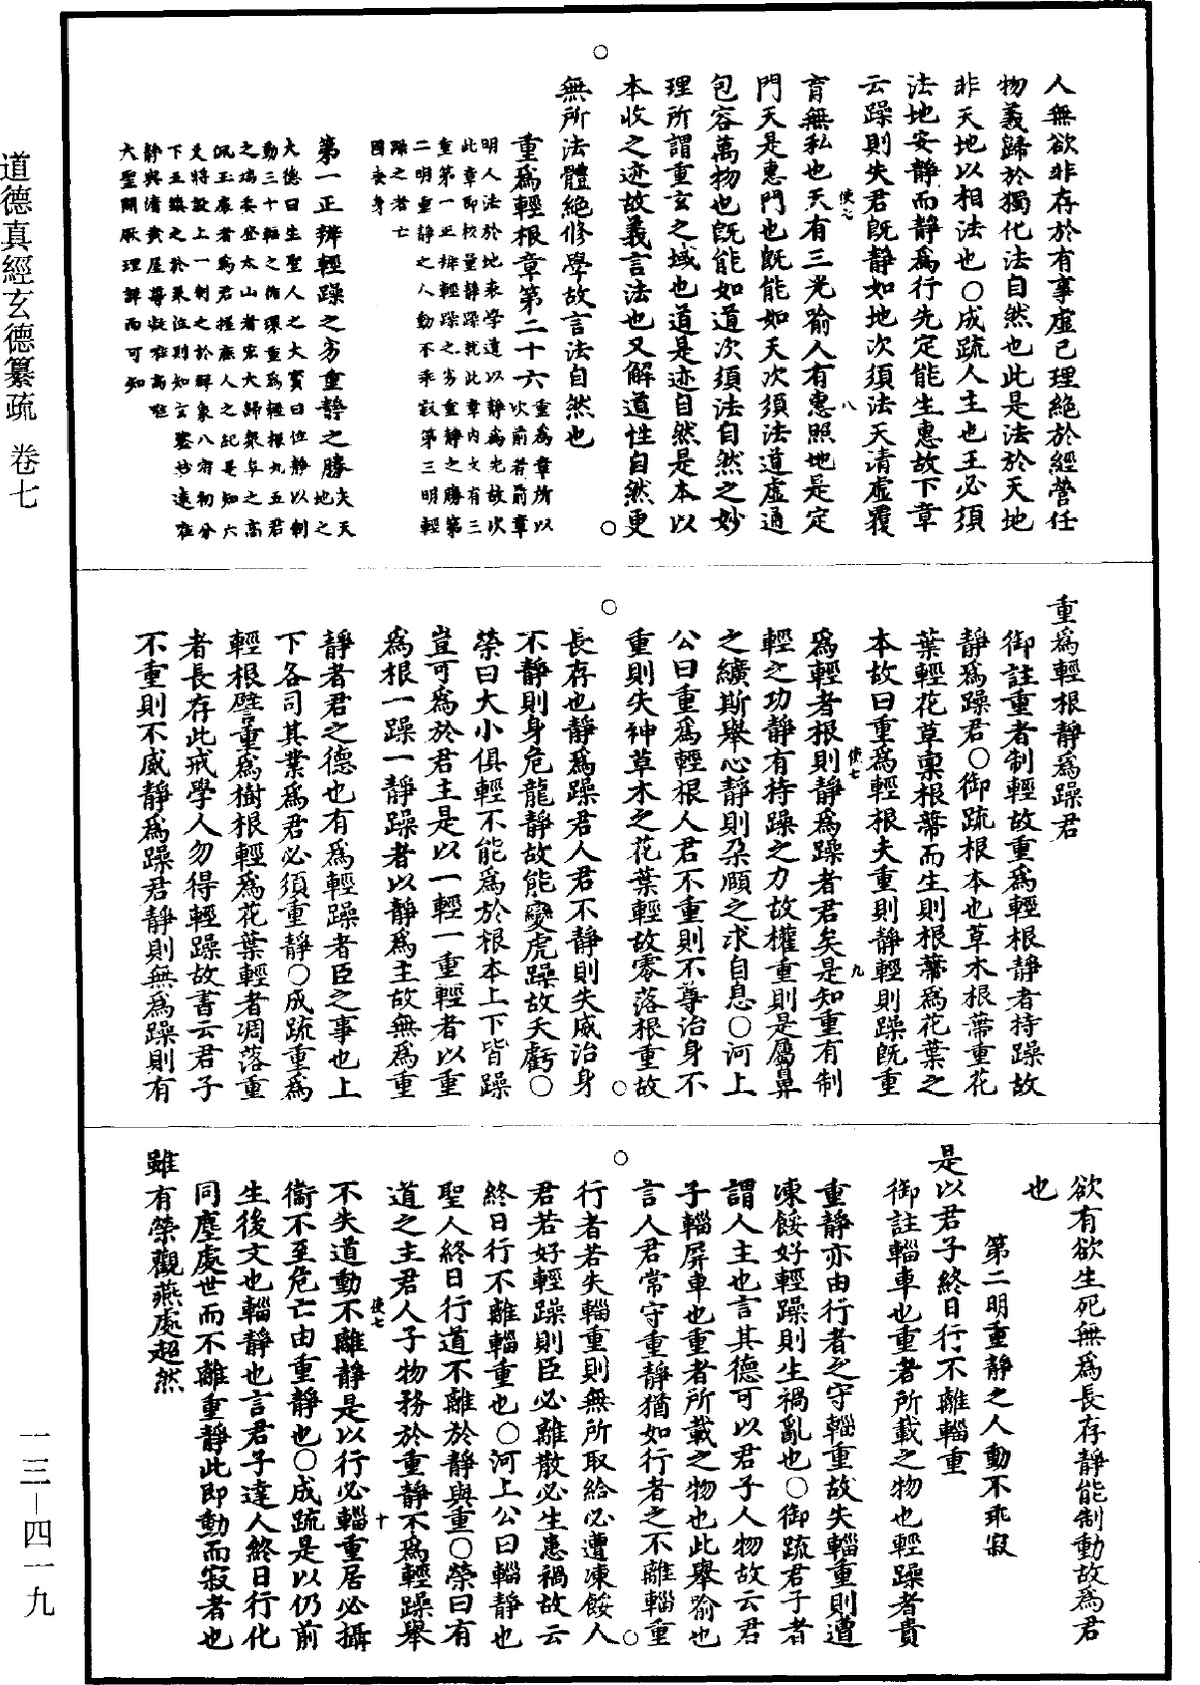 道德真經玄德纂疏 卷七
一三—四一九
人無欲非存於有事虛己理絕於經營任
物義歸於獨化法自然也此是法於天地
非天地以相法也○成疏人主也王必須
法地安靜而靜爲行先定能生惠故下章
云躁則失君既靜如地次須法天清虛覆
育無私也天有三光喻人有惠照地是定
門天是惠門也既能如天次須法道虛通
包容萬物也既能如道次須法自然之妙
理所謂重玄之域也道是迹自然是本以
本收之迹故義言法也又解道性自然更
無所法體絕修學故言法自然也
重爲輕根章第二十六 重爲章所以次前者前章
明人法於地來學道以靜爲先故次
此章即校量靜躁就此章内文有三
重第一正辯輕躁之劣重靜之勝第
二明重靜之人動不乖寂第三明輕
躁之者亡
國喪身
第一正辯輕躁之劣重靜之勝 夫天地之
大德曰生聖人之大寳曰位靜以制
動三十輻之循環重爲輕根九五君
之瑞委登太山者宗大歸衆阜之高
佩玉扆者爲君握應人之紀是知六
爻將設上一制之於群象八宿物分
下五鎮之於衆位則知玄鉴妙遠在
靜與清黄屋尊凝在高
大聖開厥理詳而可知
重爲輕根靜爲躁君
御註重者制輕故重爲輕根靜者持躁故
靜爲躁君○御疏根本也草木根蔕重花
葉輕花草禀根蔕而生則根蔕爲花葉之
本故曰重爲輕根夫重則靜輕則躁既重
爲輕者根則靜爲躁者君矣是知重有制
輕之功靜有持躁之力故權重則是屬鼻
之纊斯舉心靜則朶頤之求自息○河上
公曰重爲輕根人君不重則不尊治身不
重則失神草木之花葉輕故零落根重故
長存也靜爲躁君人君不靜則失威治身
不靜則身危龍靜故能變虎躁故夭虧○
榮曰大小俱輕不能爲於根本上下皆躁
豈可爲於君主是以一輕一重輕者以重
爲根一躁一靜躁者以靜爲主故無爲重
靜者君之德也有爲輕躁者臣之事也上
下各司其業爲君必須重靜○成疏重爲
輕根譬重爲樹根輕爲花葉輕者凋落重
者長存此戒學人勿得輕躁故書云君子
不重則不威靜爲躁君靜則無爲躁則有
欲有欲生死無爲長存靜能制動故爲君
也
第二明重靜之人動不乖寂
是以君子終日行不離輜重
御註輜車也重者所載之物也輕躁者貴
重靜亦由行者之守輜重故失輜重則遭
凍餒好輕躁則生禍亂也○御疏君子者
謂人主也言其德可以君子人物故云君
子輜屏車也重者所載之物也此舉喻也
言人君常守重靜猶如行者之不離輜重
行者若失輜重則無所取給必遭凍餒人
君若好輕躁則臣必離散必生患禍故云
終日行不離輜重也○河上公曰輜靜也
聖人終日行道不離於靜與重○榮曰有
道之主君人子物務於重靜不爲輕躁舉
不失道動不離靜是以行必輜重居必攝
衞不至危亡由重靜也○成疏是以仍前
生後文也輜靜也言君子達人終日行化
同塵處世而不離重靜此即動而寂者也
雖有榮觀燕處超然